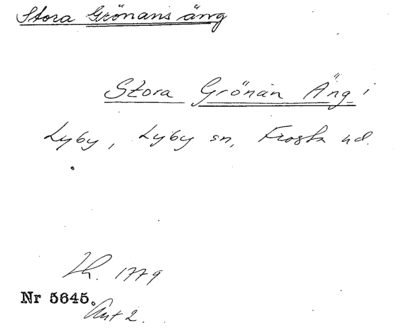 Stora Grönans äng
Stora Grönan Äng i
Lyby, Lyby sn, Frosta hd.
Lh. 1779
Nr 5645.
Akt 2.